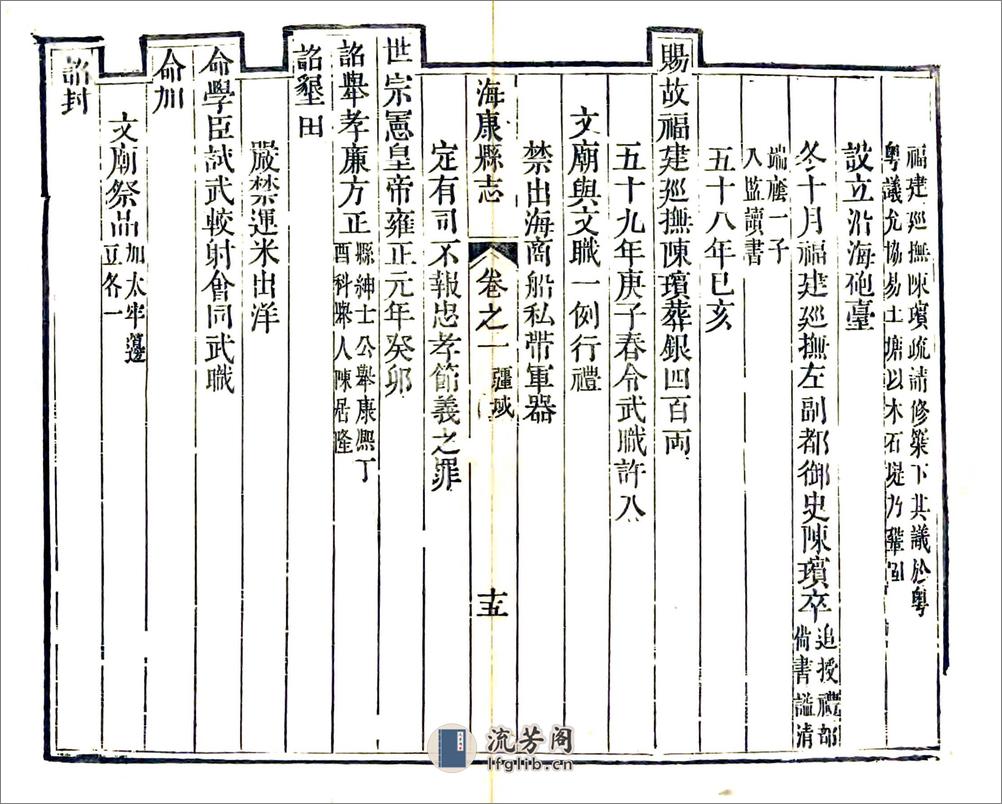 福建廵撫陳璸疏請修築下其議於粵
粵議允協易土塘以木石堤乃鞏固
設立沿海砲臺
冬十月福建廵撫左副都御史陳璸卒追授禮部
尙書諡清
端廕一子
入監讀書
五十八年已亥
賜故福建廵撫陳璸葬銀四百両
五十九年庚子春令武職許入
文廟與文職一例行禮
禁出海商船私帶軍器
海康縣志 卷之一 疆域 十五
定有司不報忠孝節義之罪
世宗憲皇帝雍正元年癸卯
詔舉孝廉方正縣紳士公舉康熙丁
酉科舉人陳居隆
詔墾田
嚴禁運米出洋
命學臣試武較射會同武職
命加
文廟祭品加太牢籩
豆各一
詔封
流芳阁
lfglib.cn